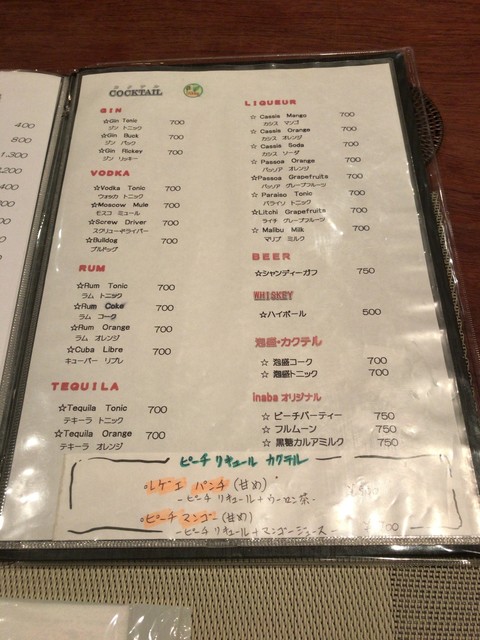 カクテル
COCKTAIL
GIN
☆Gin Tonic 700
ジン トニック
☆Gin Buck 700
ジン バック
☆Gin Rickey 700
ジン リッキー
VODKA
☆Vodka Tonic 700
ウォッカ トニック
☆Moscow Mule 700
モスコ ミュール
☆Screw Driver 700
スクリュードライバー
☆Bulldog 700
ブルドッグ
RUM
☆Rum Tonic 700
ラム トニック
☆Rum Coke 700
ラム コーク
☆Rum Orange 700
ラム オレンジ
☆Cuba Libre 700
キューバー リブレ
TEQUILA
☆Tequila Tonic 700
テキーラ トニック
☆Tequila Orange 700
テキーラ オレンジ
LIQUEUR
☆ Cassis Mango 700
カシス マンゴ
☆ Cassis Orange 700
カシス オレンジ
☆ Cassis Soda 700
カシス ソーダ
☆ Passoa Orange 700
パッソア オレンジ
☆Passoa Grapefruits 700
パッソア グレープフルーツ
☆ Paraiso Tonic 700
パライソ トニック
☆Litchi Grapefruits 700
ライチ グレープフルーツ
☆ Malibu Milk 700
マリブ ミルク
BEER
☆シャンディーガフ 750
WHISKEY
☆ハイボール 500
泡盛・カクテル
☆ 泡盛コーク 700
☆ 泡盛トニック 700
inaba オリジナル
☆ ピーチパーティー 750
☆ フルムーン 750
☆ 黒糖カルアミルク 750
ピーチ リキュール カクテル
レゲエ パンチ (甘め)
-ピーチ リキュール + ウーロン茶-
ピーチ マンゴー (甘め)
-ピーチ リキュール + マンゴージュース-
400
800
1,300